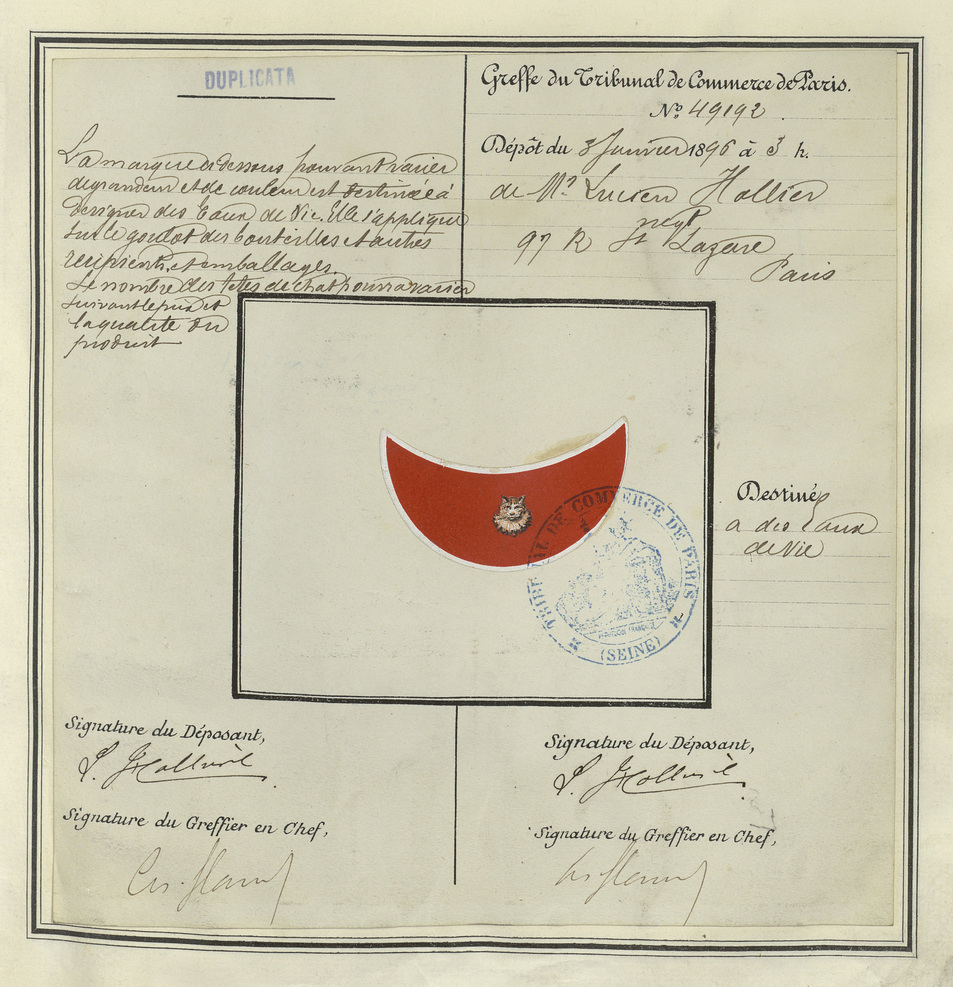 DUPLICATA
La marque ci dessous pouvant varier
de grandeur et de couleur est destinée à
designer des Eaux de Vie. Elle s'applique
sur le goulot des bouteilles et autres
recipients et emballages.
Le nombre des têtes de chat pourra varier
suivant le prix et
la qualité du
produit
Greffe du Tribunal de Commerce de Paris.
N.º 49192.
Dépôt du 3 Janvier 1896 à 3 h.
de Mr Lucien Hollier
negt
97 R St Lazare
Paris
TRIBUNAL DE COMMERCE DE PARIS
(SEINE)
Destinée
a des Eaux
de Vie
Signature du Déposant,
Signature du Greffier en Chef,
Signature du Déposant,
Signature du Greffier en Chef,